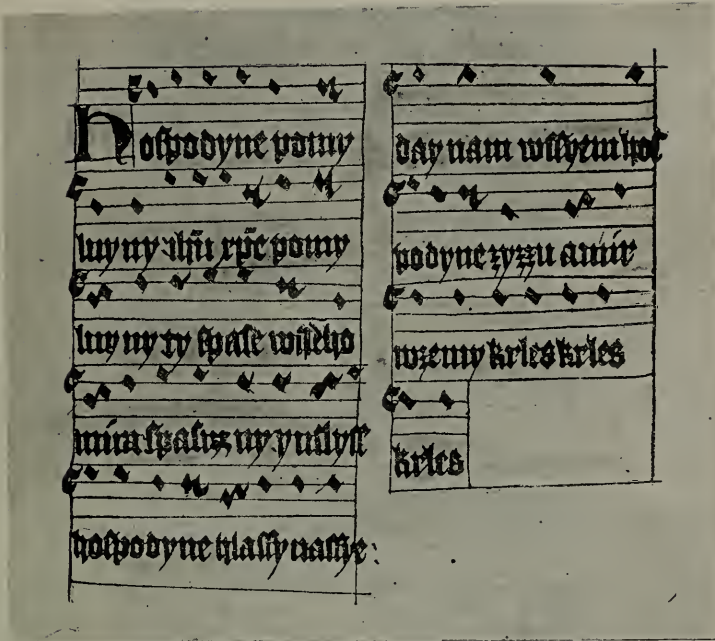 Hospodyne pomy
luy ny ihu xpe pomy
luy ny ty spase wsseho
mira spasyz ny y uslyss
hospodyne hlassy nassye:
day nam wssyem hos
podyne zyzzu a mir
wzemy krles krles
krles